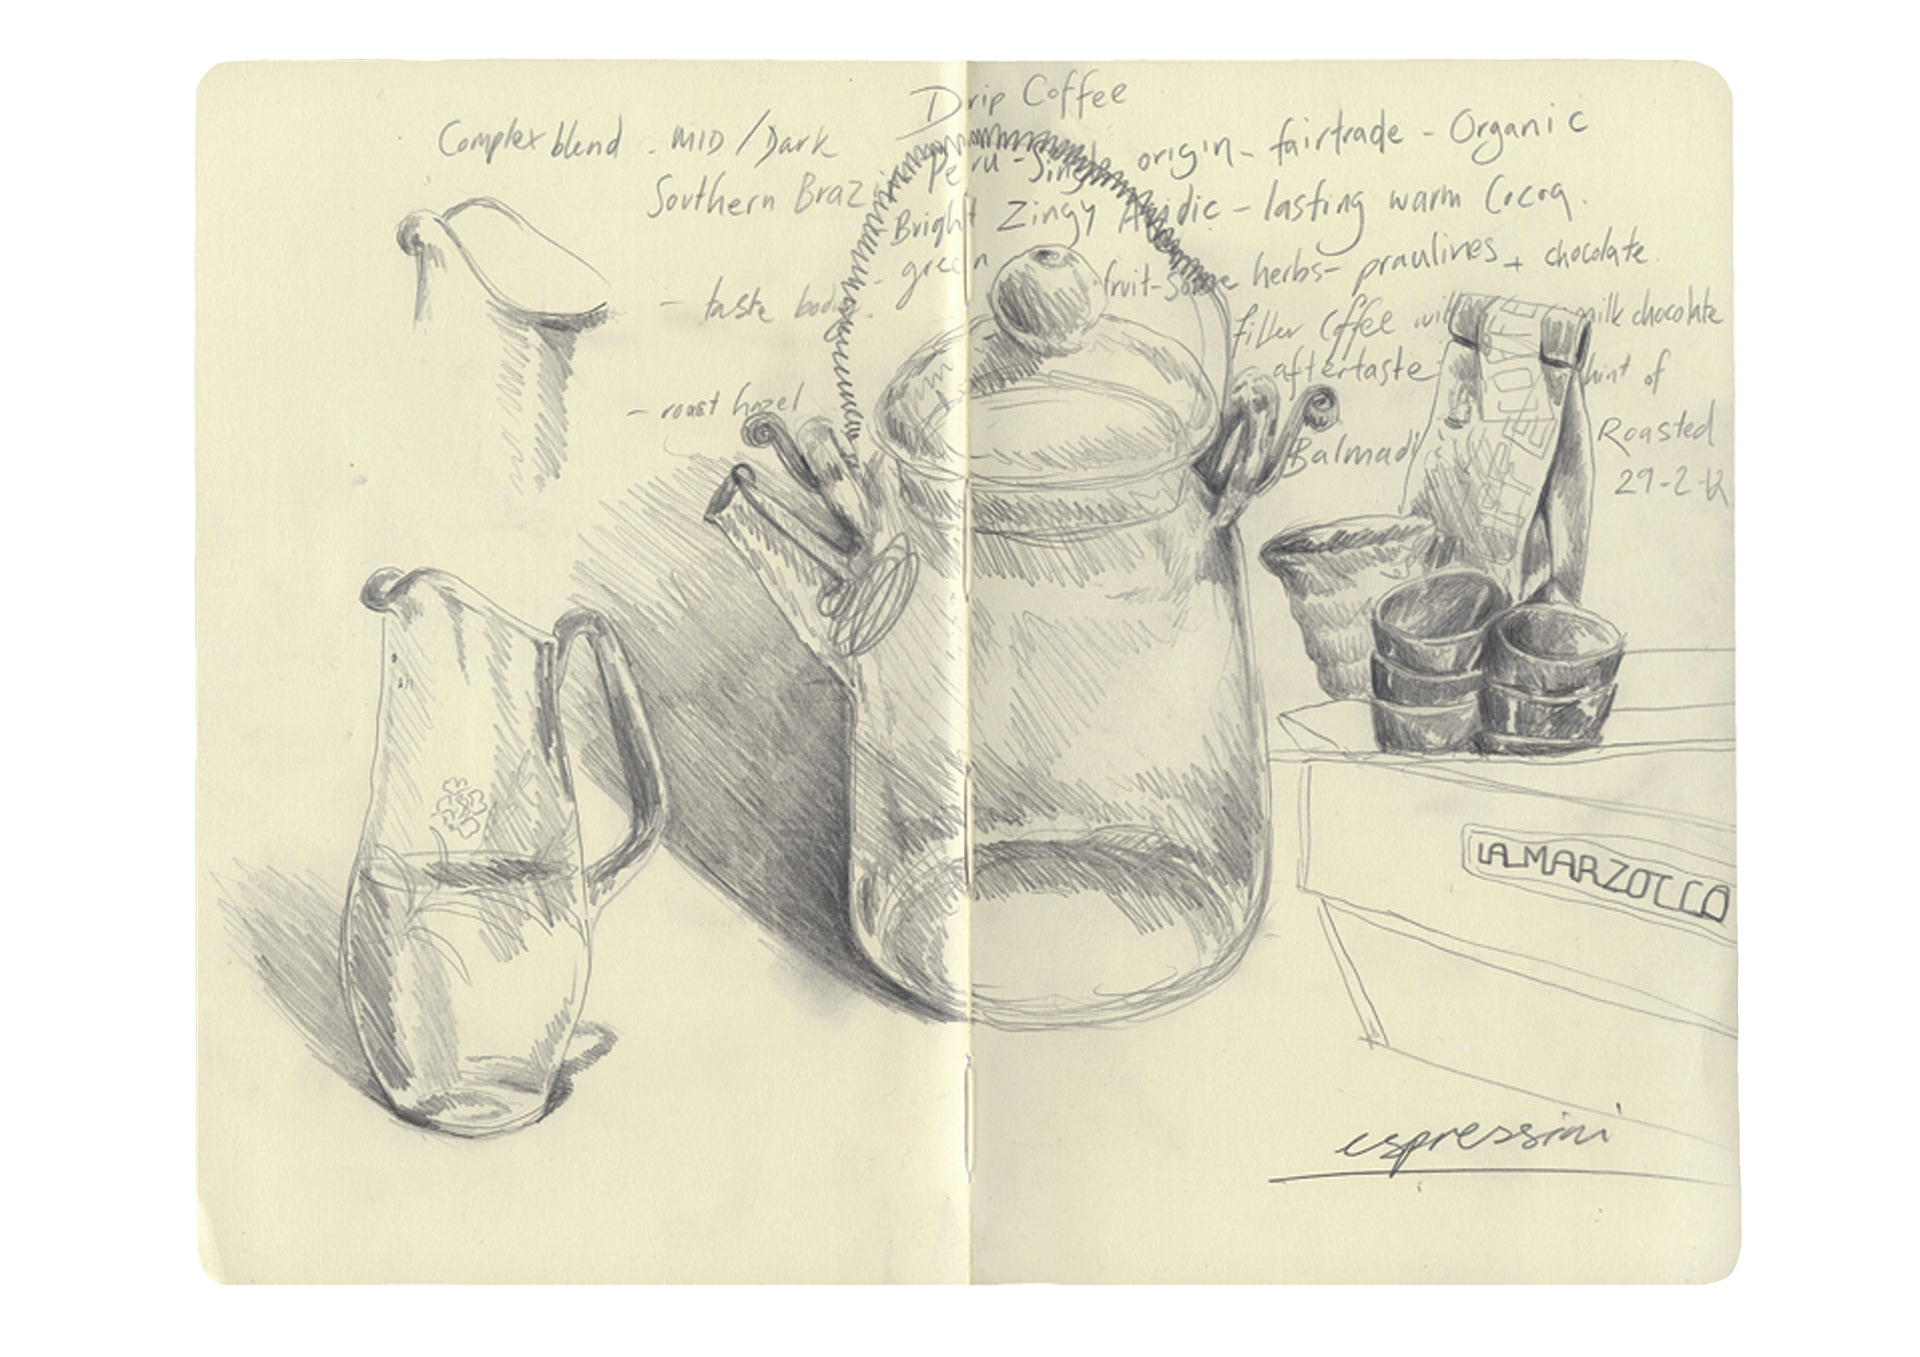 Drip Coffee
Complex blend . MID / Dark
Peru - Single origin - fairtrade - Organic
Southern Braz
Bright Zingy Acidic - lasting warm Cocoa.
- green fruit - some herbs - praulines + chocolate.
- taste body.
filter Coffee with milk chocolate
aftertaste hint of
- roast hazel
Balmadi
Roasted
29-2-12
COFFEE
LA MARZOCCO
espressini